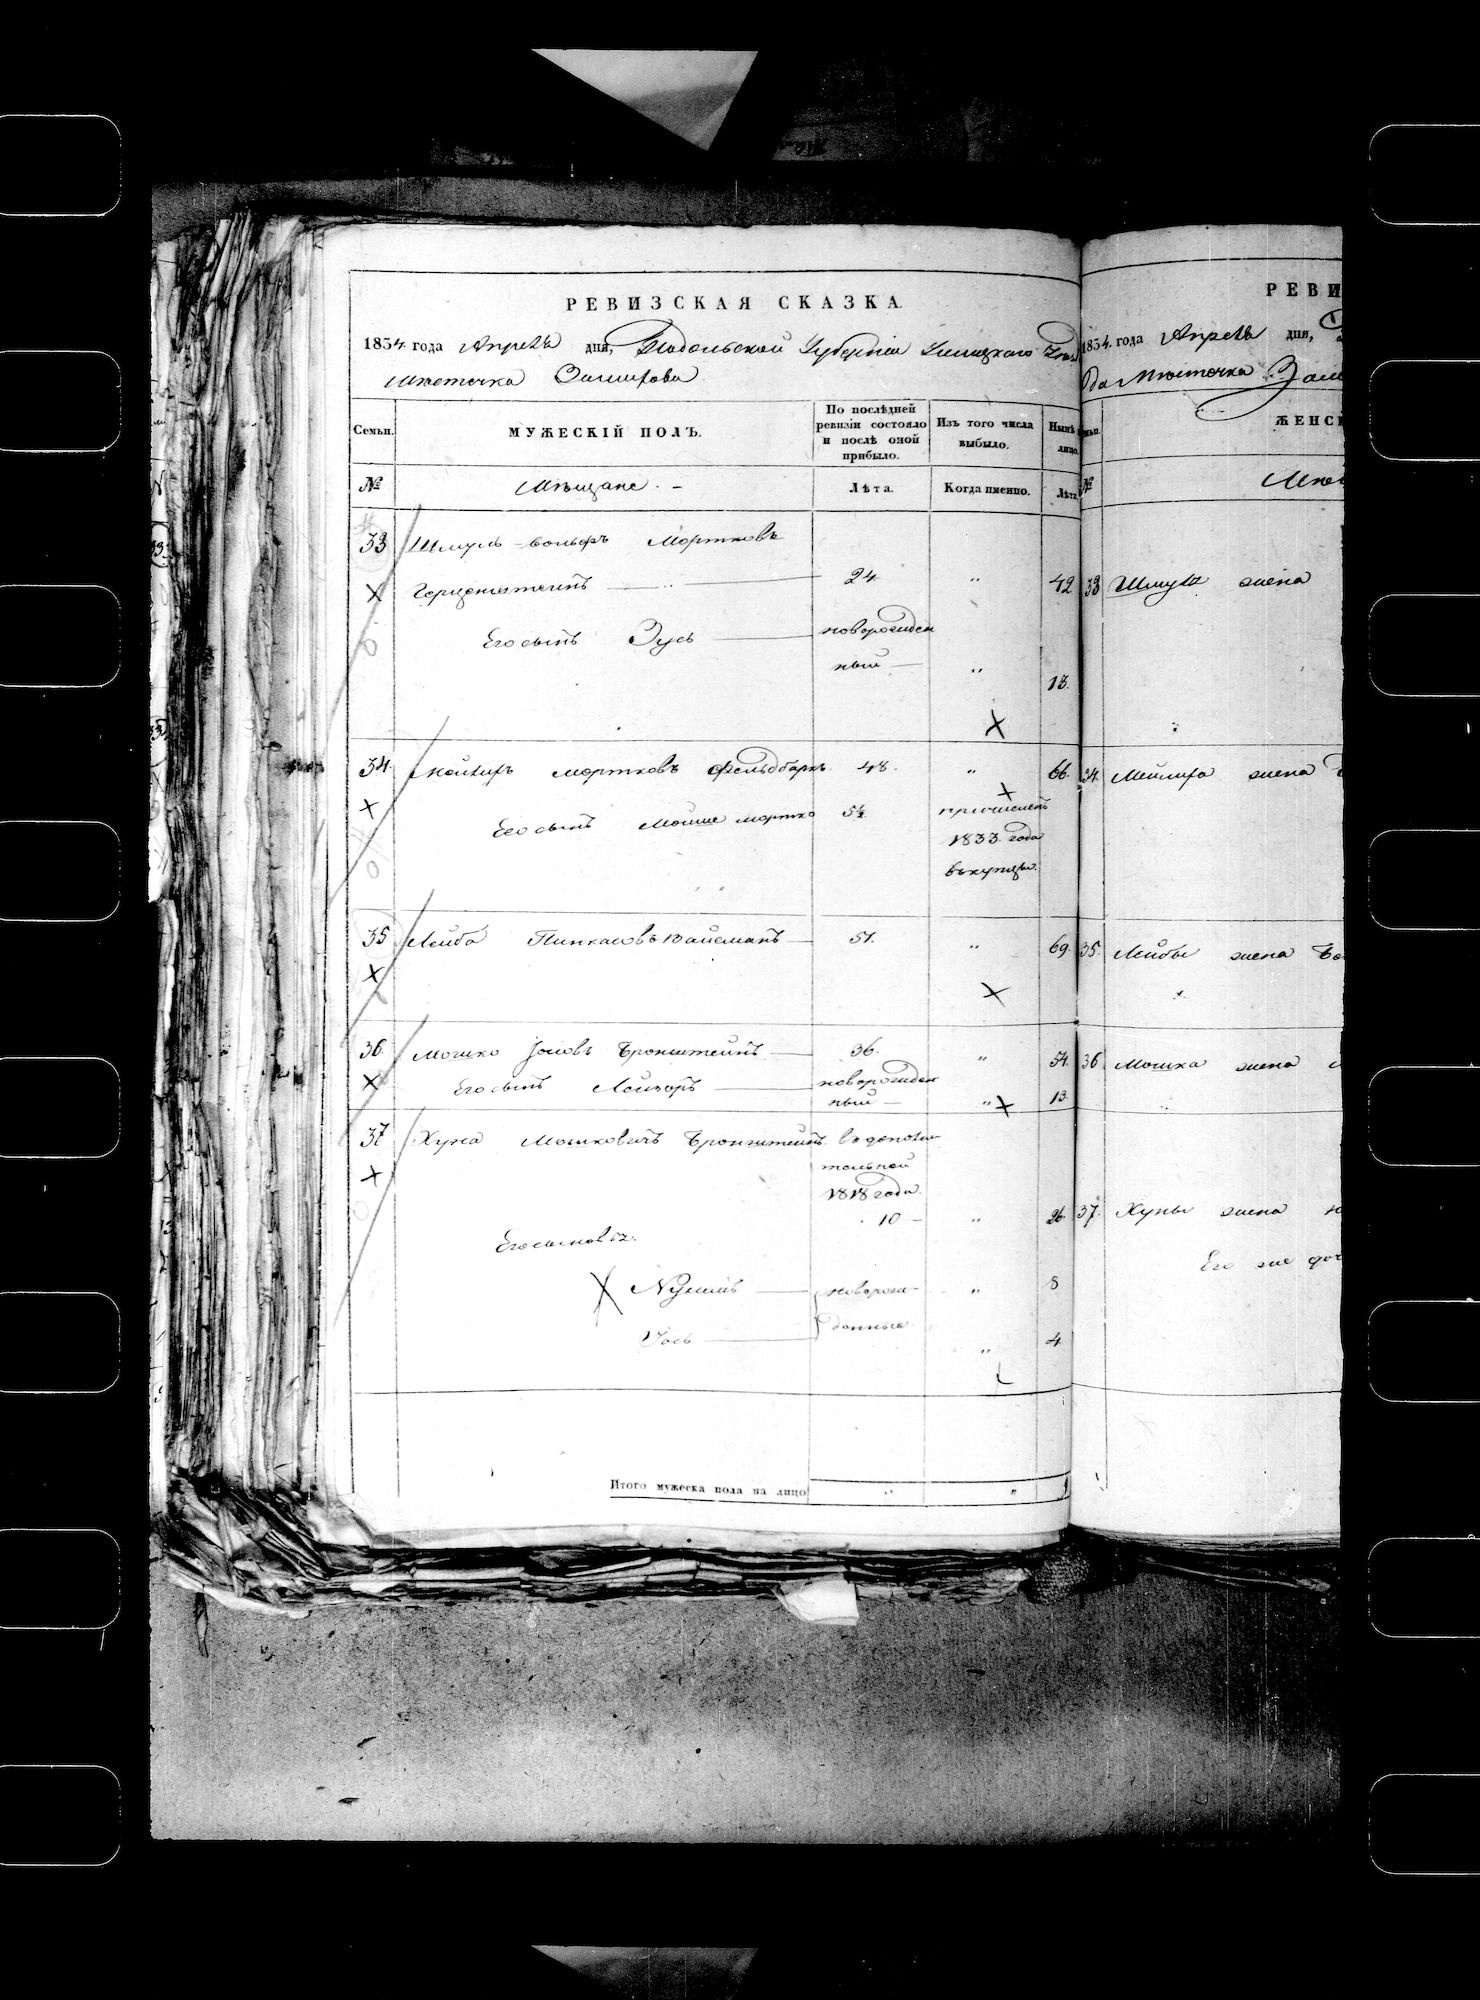 РЕВИЗСКАЯ СКАЗКА.
1834 года Апреля дня, Подольской Губерніи Ушицкаго Уѣз
Мѣстечка
Семьи.
МУЖЕСКІЙ ПОЛЪ.
По послѣдней ревизіи состояло и послѣ оной прибыло.
Изъ того числа выбыло.
Нынѣ лицо.
№
Мѣщане. -
Лѣта.
Когда именно.
Лѣта
33 Шмуль-Вольфъ Мортковъ
Герценштейнъ 24 " 42
Его сынъ Зусь новорожден
ный " 13.
34. Мортковъ 48. " 66.
Его сынъ Мойше Мортко 5½ причисленъ
1833. года
въ купцы.
35 Лейба Пинкасовъ Вайсманъ 51. " 69.
36. Мошко Іосовъ Бронштейнъ 36. " 54.
Его сынъ Лейзоръ новорожден
ный " 13.
37 Хуна Мошковичъ Бронштейнъ въ дополни
тельной
1818 года.
10 " 26.
Его сыновья.
новорож " 8
Іось денные " 4
Итого мужеска пола на лицо " "
РЕВИ
1834. года Апреля дня,
да Мѣстечка
ЖЕНСК
№
33 Шмуля жена
34. Мейлира жена
35. Лейбы жена
36 Мошка жена
37. Хуны жена
Его же доч